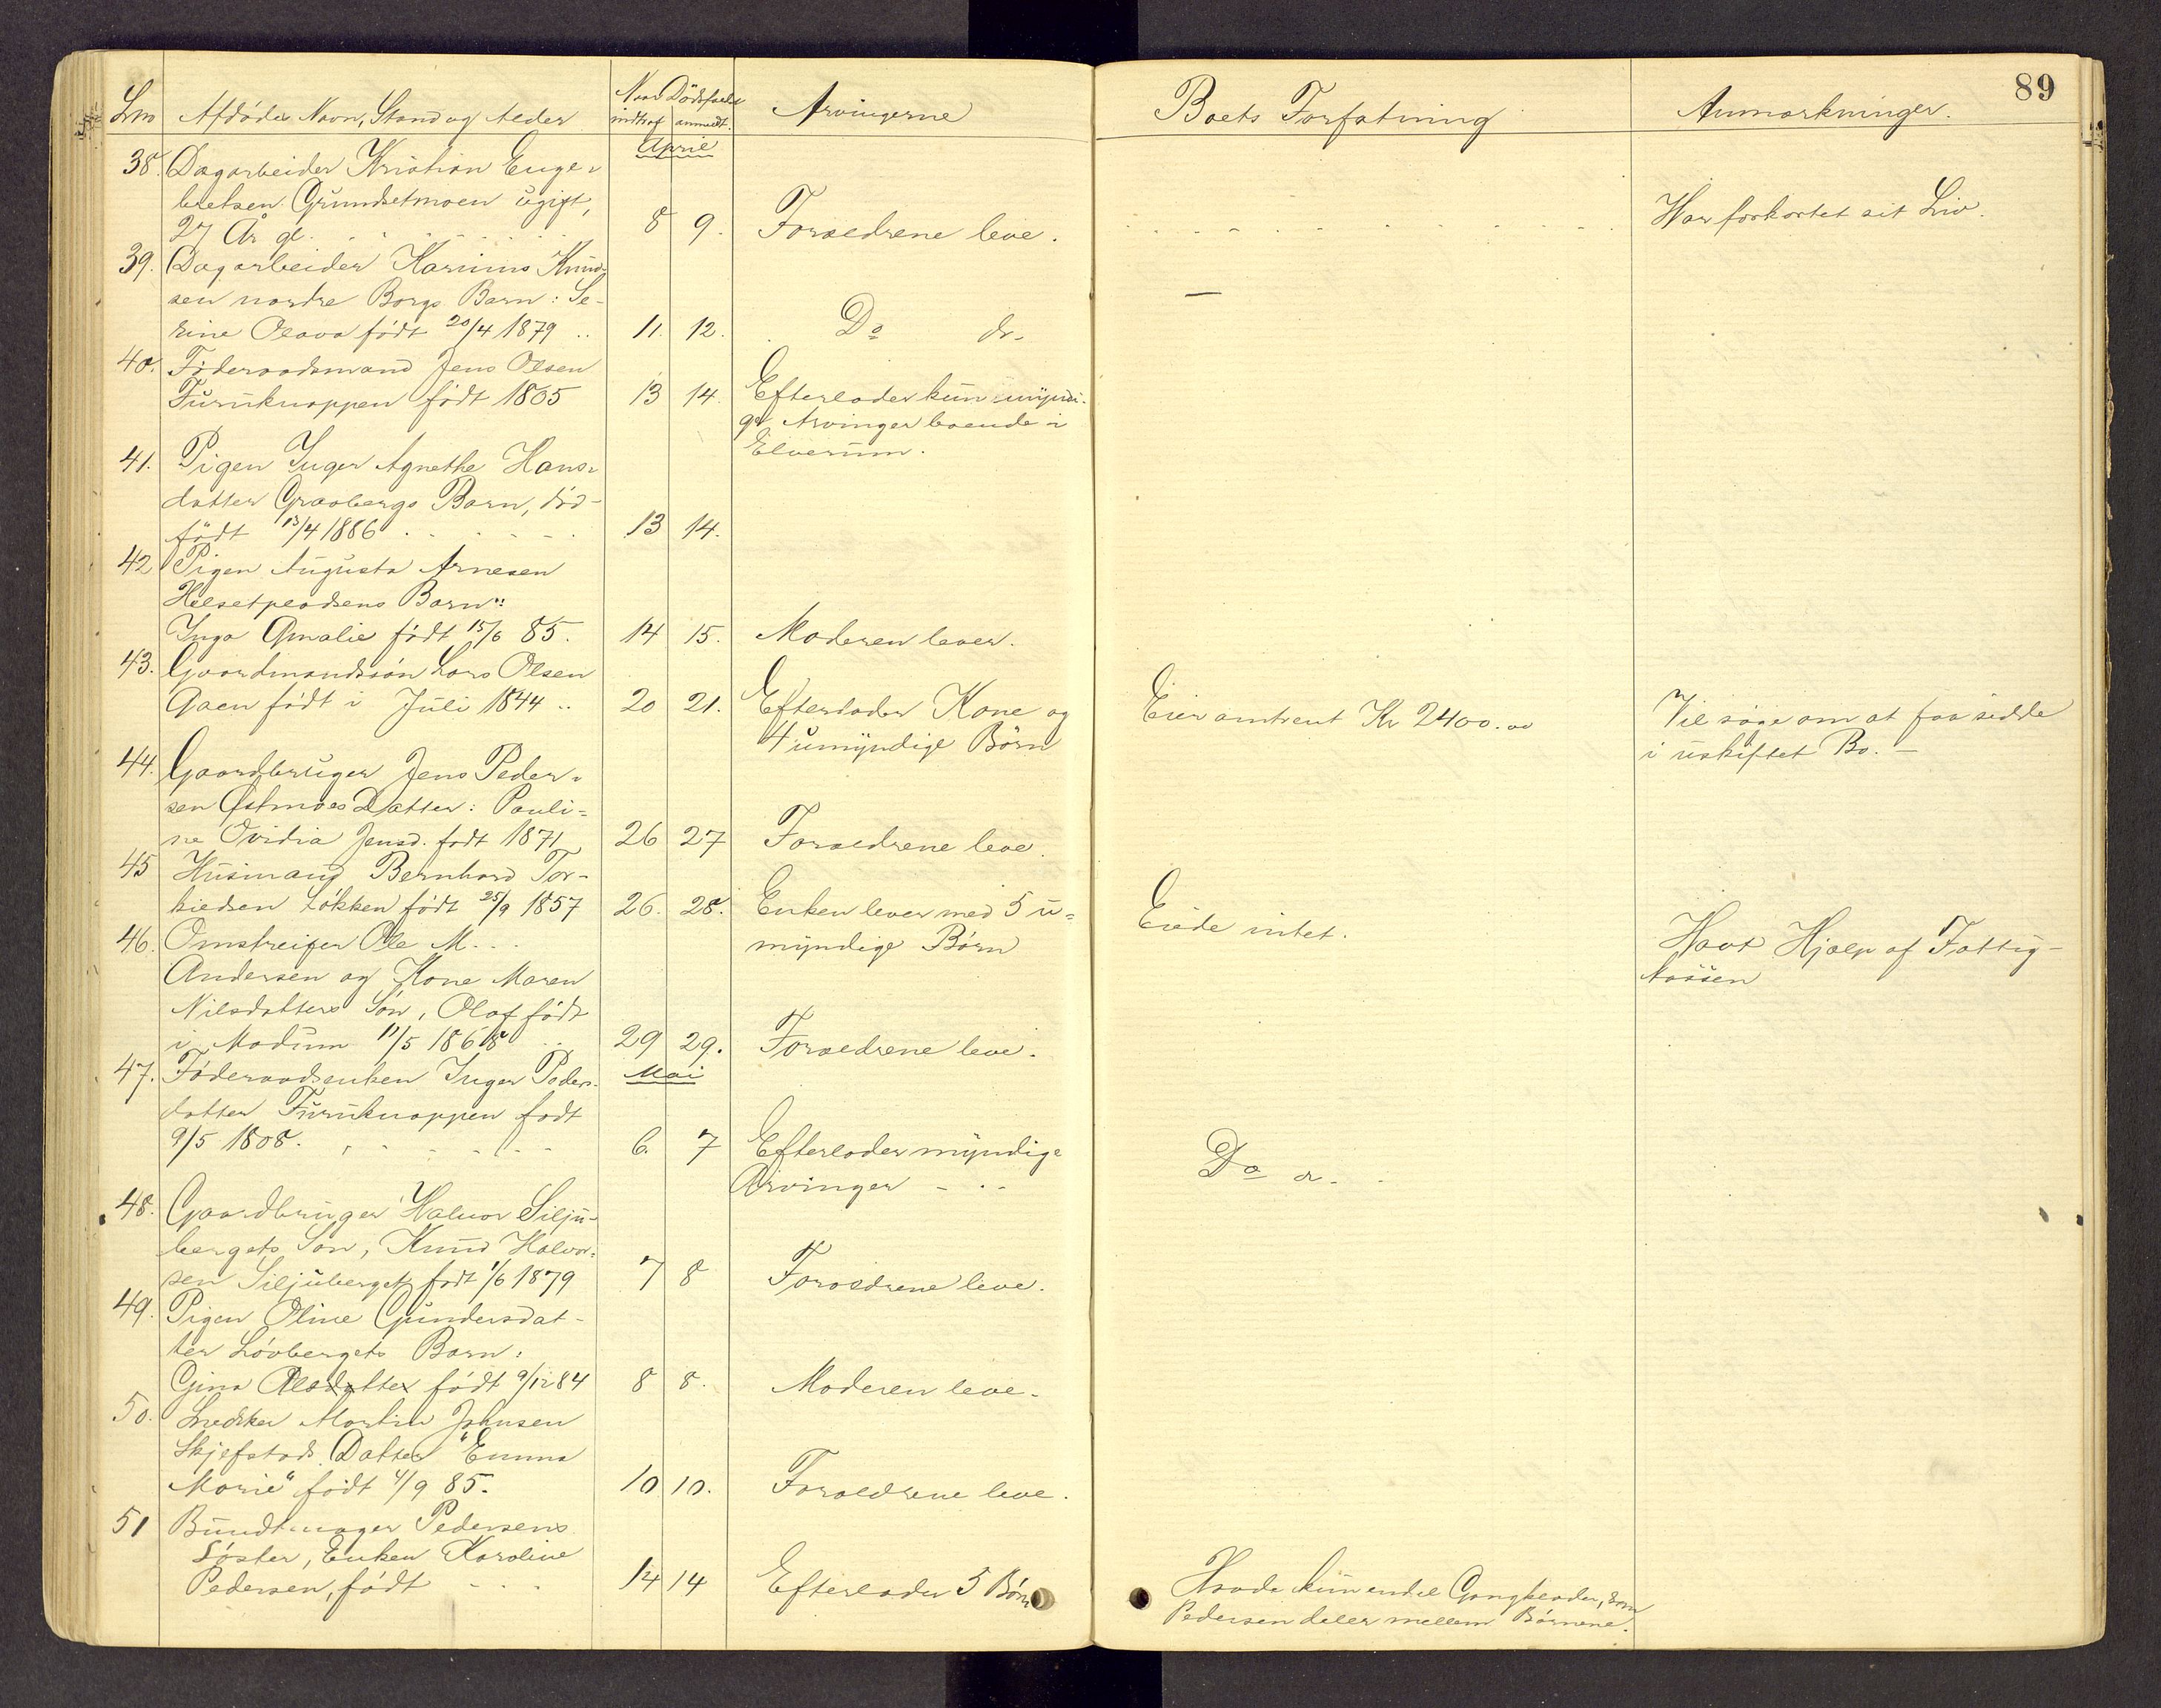 89
Lno Afdödes Navn, Stand og Alder Naar Dödsfaldet indtraf anmeldt. Arvingerne Boets Forfatning Anmærkninger.
April
38. Dagarbeider Kristian Enge-
bretsen Grundsetmoen ugift,
27 År gl. 8 9. Forældrene leve. Har forkortet sit Liv.
39. Dagarbeider Karinus Knud-
sen nordre Borgs Barn: Se-
rine Olava født 20/4 1879 .. 11. 12. Do do. —
40. Föderaadsmand Jens Olsen
Furuknappen født 1805 13 14. Efterlader kun myndi-
ge Arvinger boende i
Elverum.
41. Pigen Inger Agnethe Hans-
datter Graabergs Barn, död-
født 13/4 1886 13 14.
42 Pigen Augusta Arnesen
Helsetpladsens Barn:
Inga Amalie født 15/6 85. 14 15. Moderen lever.
43. Gaardmandssön Lars Olsen
Gaen født i Juli 1844 .. 20 21. Efterlader Kone og
4 umyndige Börn
Eier omtrent Kr 2400.00
Vil søge om at faa sidde
i uskiftet Bo. —
44. Gaardbruger Jens Peder-
sen Østmoes Datter: Pauli-
ne Ovidia Jensd. født 1871 26 27 Forældrene leve.
45 Husmand Bernhard Tor-
kildsen Løkken født 25/9 1857 26. 28. Enken lever med 5 u-
myndige Børn
Eiede intet.
Havt Hjælp af Fattig-
kassen
46. Omstreifer Ole M...
Andersen og Kone Maren
Nilsdatters Sön, Olaf født
i Modum 11/5 1868 .. 29 29. Forældrene leve.
Mai
47. Föderaadsenken Inger Peders-
datter Furuknappen født
9/5 1808. 6. 7 Efterlader myndige
Arvinger - . - Do do.
48. Gaardbruger Halvor Silju-
bergets Sön, Knud Halvor-
sen Siljuberget født 1/6 1879 7 8 Forældrene leve.
49. Pigen Oline Gundersdat-
ter Lövbergets Barn:
Gina Olsdatter født 9/12 84 8 8. Moderen leve.
50. Snedker Martin Johnsen
Skjefstads Datter "Emma
Marie" født 4/9 85. 10 10. Forældrene leve.
51 Bundtmager Pedersens
Söster, Enken Karoline
Pedersen, født - - - 14 14 Efterlader 5 Börn
Havde kun endel Gangklæder, som
Pedersen deler mellem Börnene.